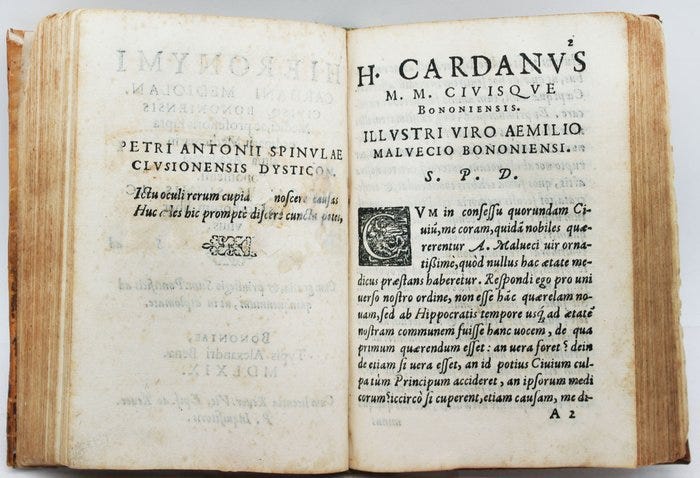 PETRI ANTONII SPINVLAE
CLVSIONENSIS DYSTICON.
Ictu oculi rerum cupis noscere causas
Huc ades hic promptè discere cuncta potes,
2
H. CARDANVS
M. M. CIVISQVE
BONONIENSIS.
ILLVSTRI VIRO AEMILIO
MALVECIO BONONIENSI.
S. P. D.
CVM in consessu quorundam Ci-
uiũ, me coram, quidã nobiles quæ-
rerentur A. Malueci uir orna-
tißimè, quòd nullus hac ætate me-
dicus præstans haberetur. Respondi ego pro uni
uerso nostro ordine, non esse hãc quærelam no-
uam, sed ab Hippocratis tempore usq; ad ætatẽ
nostram communem fuisse hanc uocem, de qua
primum quærendum esset: an uera foret? dein
de etiam si uera esset, an id potius Ciuium cul-
pa tùm Principum accideret, an ipsorum medi
corum? iccircò si cuperent, etiam causam, me di-
A 2
HIERONYMI
CARDANI MEDIOLAN.
CIVISQ. BONONIENSIS
BONONIAE,
Typis Alexandri Bena.
MDLXIX.